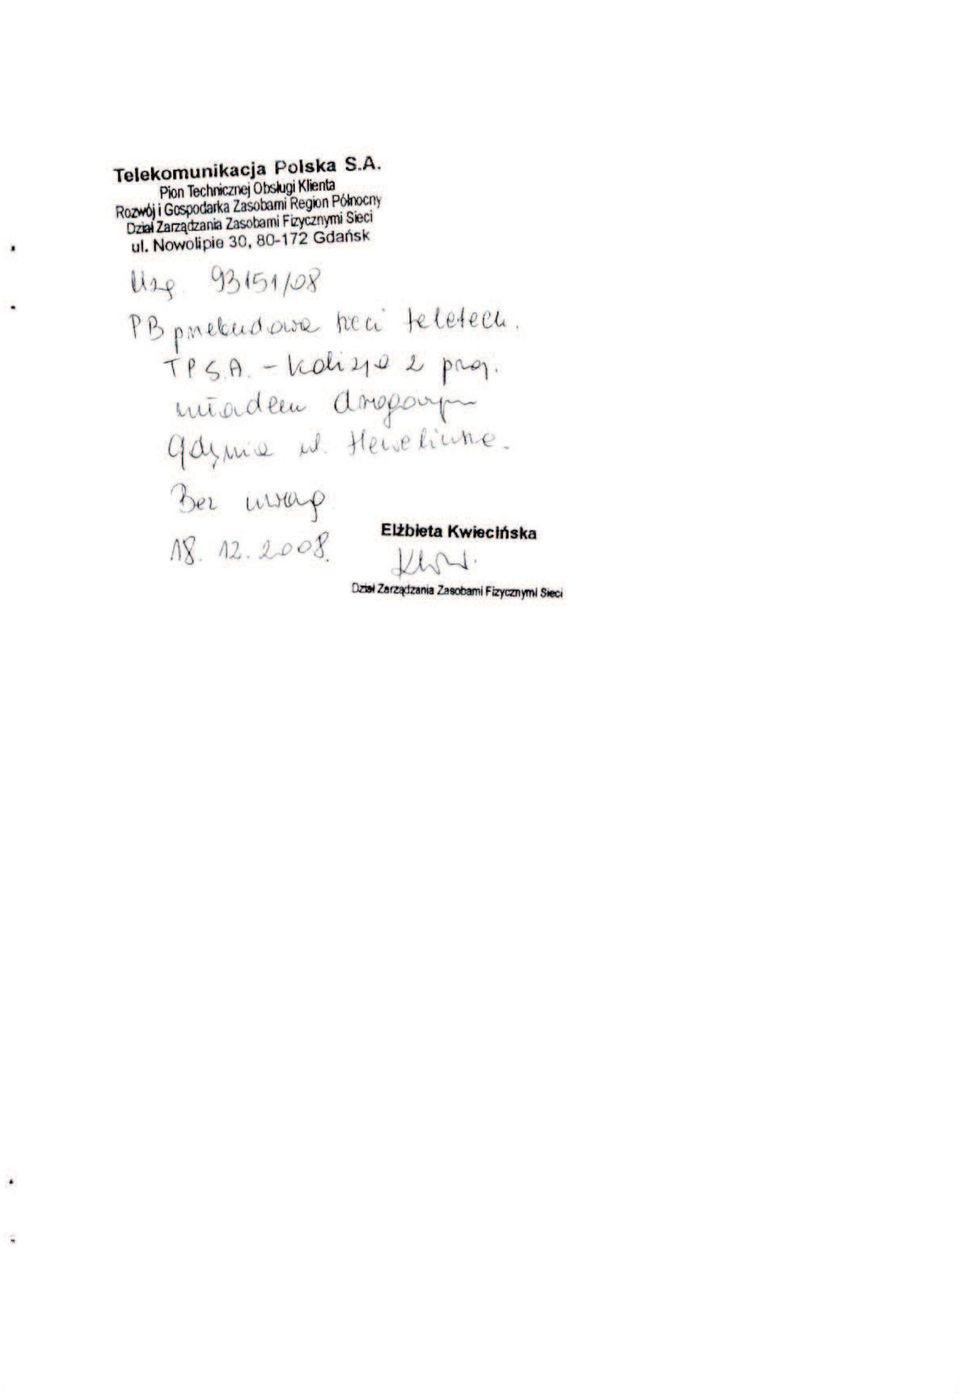 Telekomunikacja Polska S.A.
Pion Technicznej Obsługi Klienta
Rozwój i Gospodarka Zasobami Region Północny
Dział Zarządzania Zasobami Fizycznymi Sieci
ul. Nowolipie 30, 80-172 Gdańsk
Uzg. 93151/08
PB przebudowa sieci teletech.
TP S.A. - kolizja z proj.
układem drogowym
Gdynia ul. Heweliusza.
Bez uwag
18. 12. 2008.
Elżbieta Kwiecińska
Dział Zarządzania Zasobami Fizycznymi Sieci